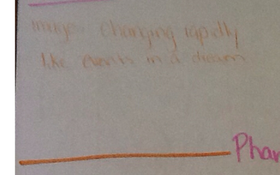 images changing rapidly
like events in a dream
Phan